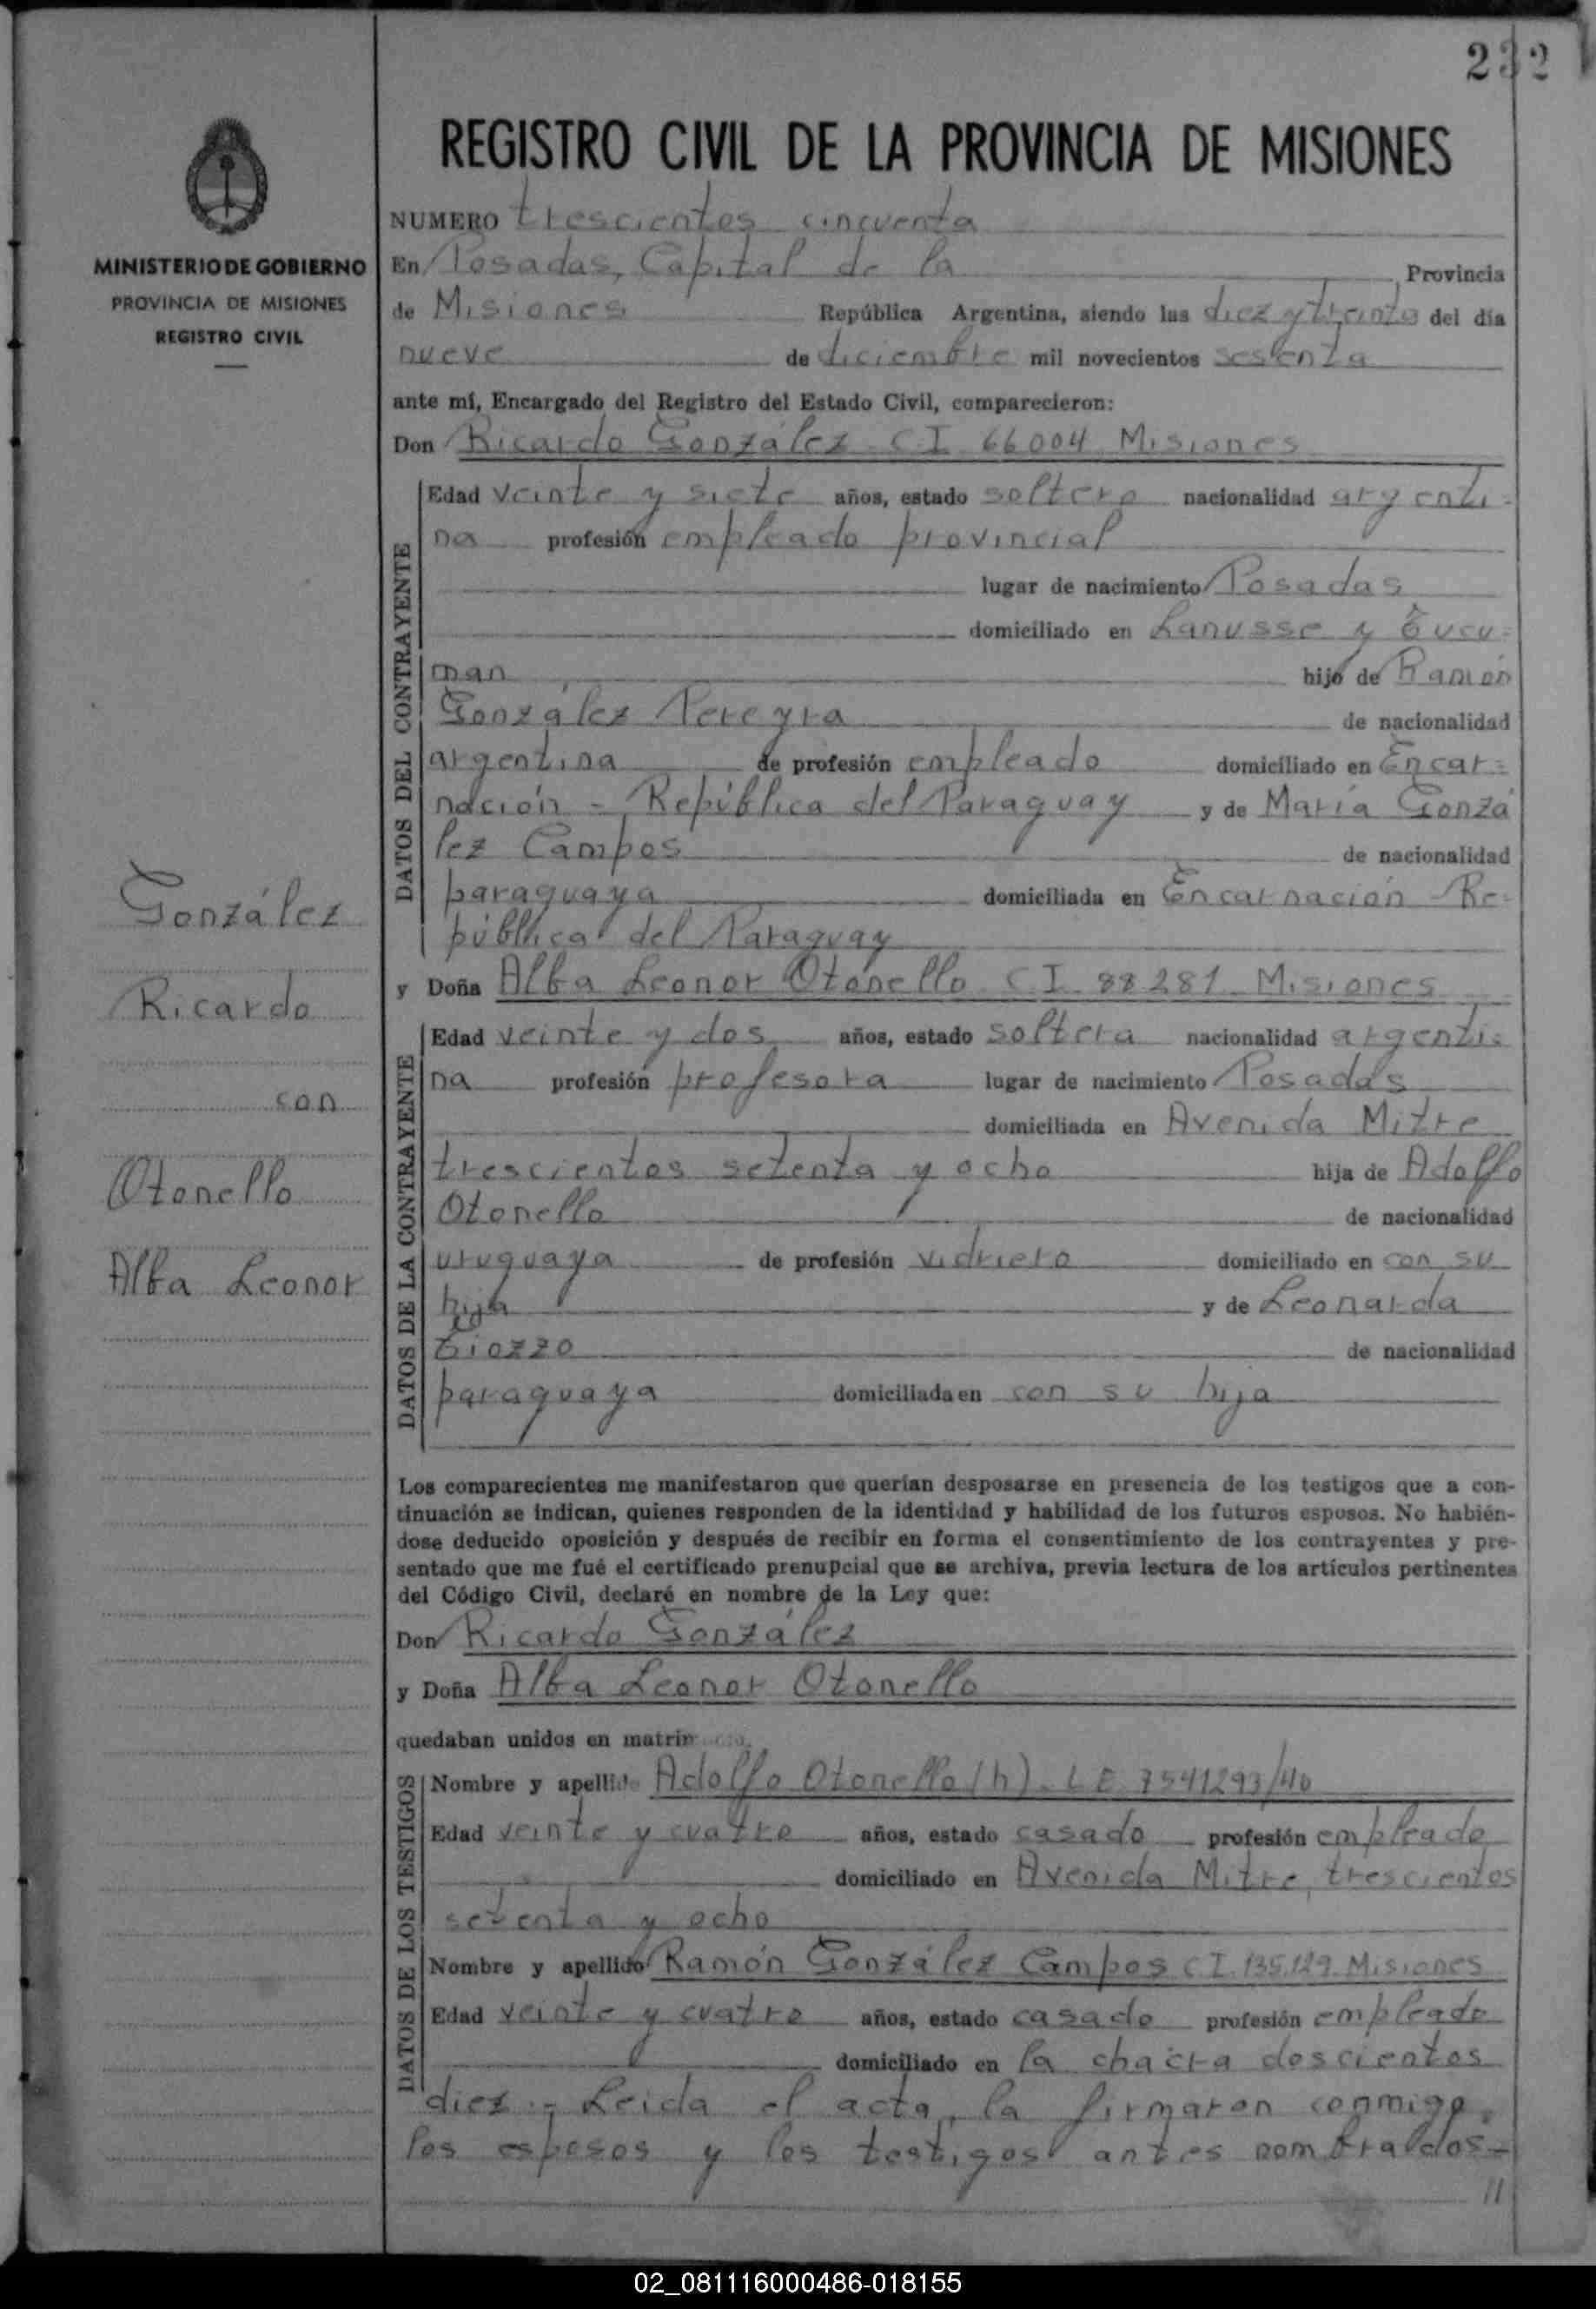 232
REGISTRO CIVIL DE LA PROVINCIA DE MISIONES
MINISTERIO DE GOBIERNO
PROVINCIA DE MISIONES
REGISTRO CIVIL
González
Ricardo
con
Otonello
Alba Leonor
NUMERO trescientos cincuenta
En Posadas, Capital de la Provincia
de Misiones República Argentina, siendo las diez y treinta del día
nueve de diciembre mil novecientos sesenta
ante mí, Encargado del Registro del Estado Civil, comparecieron:
Don Ricardo González C I 66004 Misiones
DATOS DEL CONTRAYENTE
Edad veinte y siete años, estado soltero nacionalidad argenti=
na profesión empleado provincial
lugar de nacimiento Posadas
domiciliado en Lanusse y Tucu=
man hijo de Ramón
González Pereyra de nacionalidad
argentina de profesión empleado domiciliado en Encar=
nación = República del Paraguay y de María Gonzá
lez Campos de nacionalidad
paraguaya domiciliada en Encarnación - Re=
pública del Paraguay
y Doña Alba Leonor Otonello C I 88281 Misiones
DATOS DE LA CONTRAYENTE
Edad veinte y dos años, estado soltera nacionalidad argenti=
na profesión profesora lugar de nacimiento Posadas
domiciliada en Avenida Mitre
trescientos setenta y ocho hija de Adolfo
Otonello de nacionalidad
uruguaya de profesión vidriero domiciliado en con su
hija y de Leonarda
Tiozzo de nacionalidad
paraguaya domiciliada en con su hija
Los comparecientes me manifestaron que querían desposarse en presencia de los testigos que a con-
tinuación se indican, quienes responden de la identidad y habilidad de los futuros esposos. No habién-
dose deducido oposición y después de recibir en forma el consentimiento de los contrayentes y pre-
sentado que me fué el certificado prenupcial que se archiva, previa lectura de los artículos pertinentes
del Código Civil, declaré en nombre de la Ley que:
Don Ricardo González
y Doña Alba Leonor Otonello
quedaban unidos en matrimonio.
DATOS DE LOS TESTIGOS
Nombre y apellido Adolfo Otonello (h). L E 7541293/40
Edad veinte y cuatro años, estado casado profesión empleado
domiciliado en Avenida Mitre, trescientos
setenta y ocho
Nombre y apellido Ramón González Campos C I. 135.129. Misiones
Edad veinte y cuatro años, estado casado profesión empleado
domiciliado en la chacra doscientos
diez.- Leida el acta, la firmaron conmigo,
los esposos y los testigos antes nombrados-
//
02_081116000486-018155